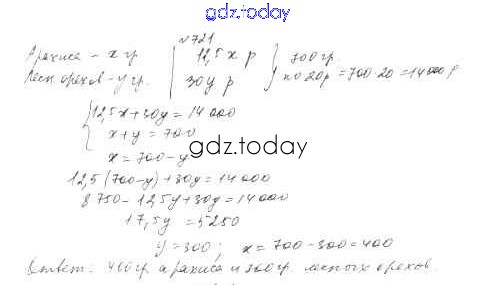 gdz.today
№721
Арахиса – x гр. | 12,5x р } 700 гр.
Лесн. орехов – y гр. | 30y р } по 20р = 700·20 = 14000 р
{ 12,5x + 30y = 14000
x + y = 700
x = 700 – y
gdz.today
12,5 (700 – y) + 30y = 14000
8750 – 12,5y + 30y = 14000
17,5y = 5250
y = 300 ; x = 700 – 300 = 400
Ответ: 400 гр. арахиса и 300 гр. лесных орехов.